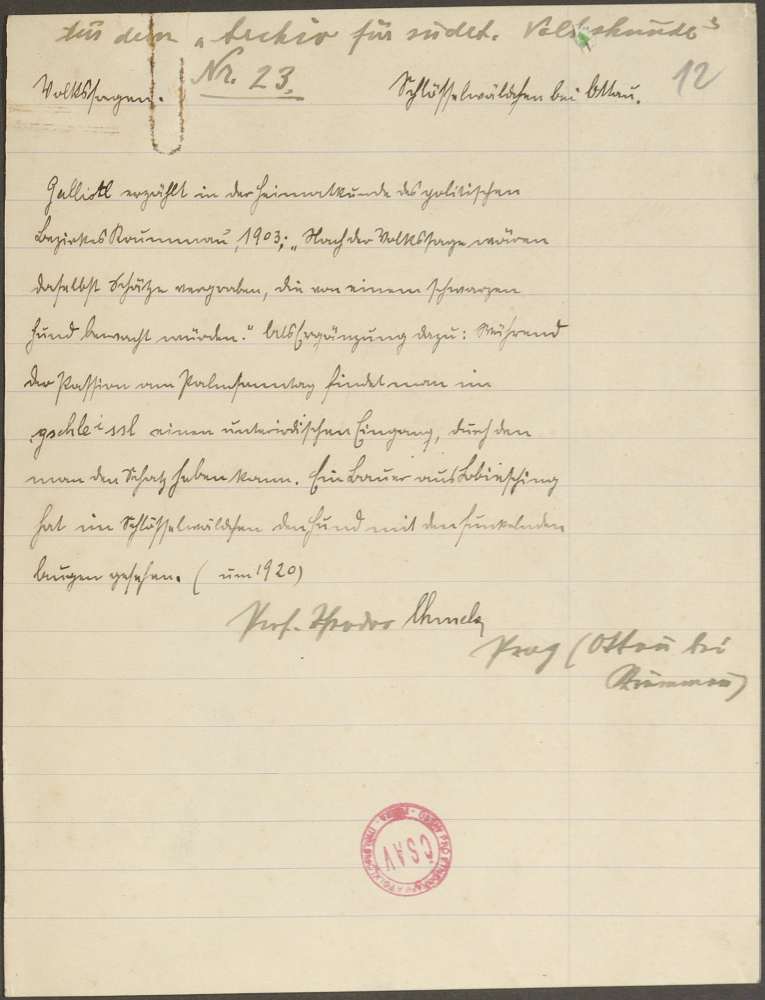 Aus dem „Archiv für sudet. Volkskunde“
Nr. 23.
12
Volkssagen.
Schlösselwäldchen bei Ottau.
Gallistl erzählt in der Heimatkunde des politischen
Bezirkes Krummau, 1903: „Nach der Volkssage wären
daselbst Schätze vergraben, die von einem schwarzen
Hund bewacht würden.“ Als Ergänzung dazu: Während
der Passion am Palmsonntag findet man im
gschleissl einen unterirdischen Eingang, durch den
man den Schatz heben kann. Ein Bauer aus Lobiesching
hat im Schlösselwäldchen den Hund mit den funkelnden
Augen gesehen. (um 1920)
Prof. Theodor Chmela
Prag (Ottau bei
Krummau)
ČSAV